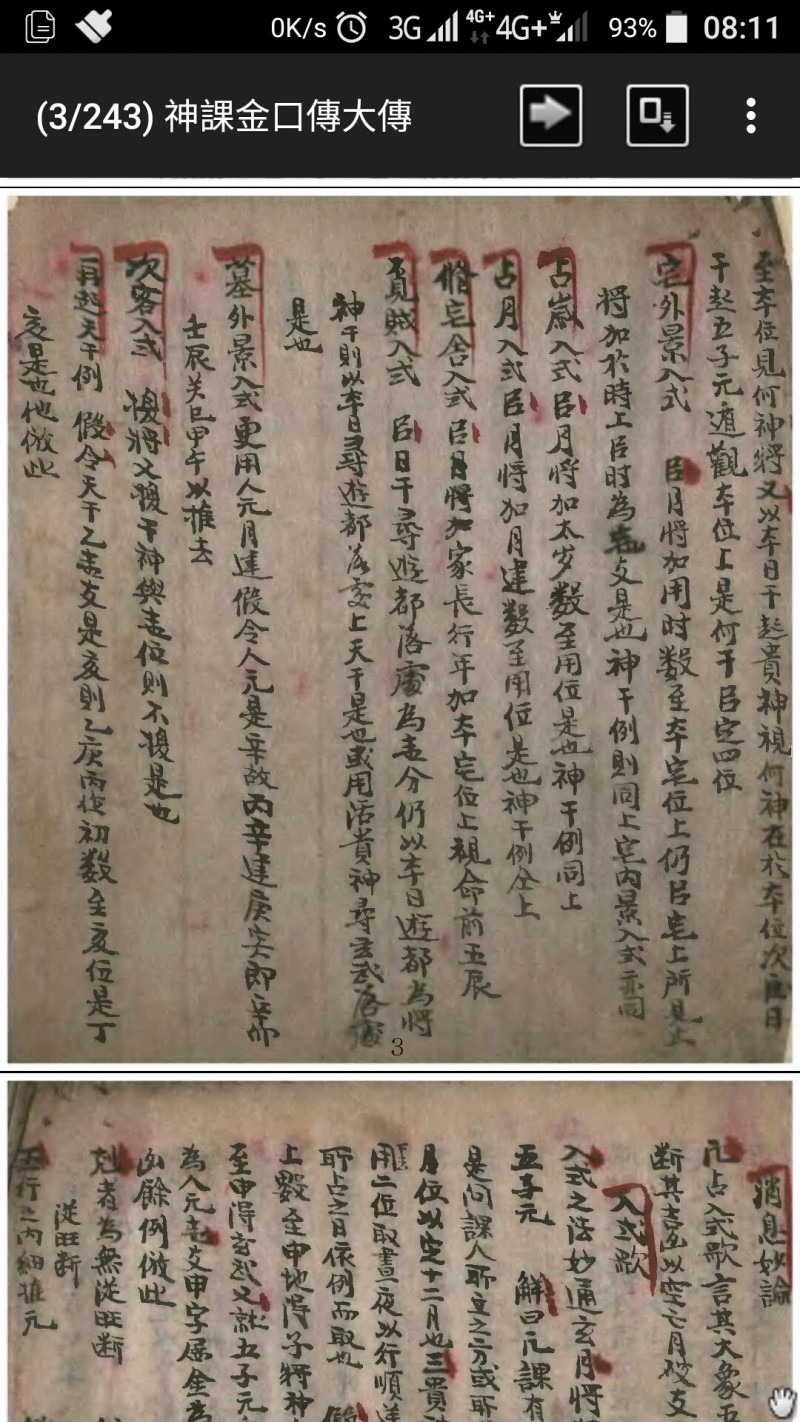 0K/s 3G 4G+ 4G+ 93% 08:11
(3/243) 神課金口傳大傳
至本位見何神將又以本日干起貴神視何神在於本位次㠯日
干起五子元遁觀本位上是何干㠯定四位
宅外景入式 㠯月將加用时数至本宅位上仍㠯宅上所見上
將加於時上㠯时為支是也神干例則同上宅內景入式亦同
占嵗入式㠯月將加太岁数至用位是也神干例同上
占月入式㠯月將加月建数至用位是也神干例仝上
脩宅舍入式㠯月將加家長行年加本宅位上視命前五辰
覓賊入式 㠯日干尋遊都落處為盂分仍以本日遊都為將
神干則以本日尋遊都落處上天干是也或用活貴神尋玄武落處
是也
墓外景入式更用人元月建假令人元是辛故丙辛建庚寅即辛卯
壬辰关巳甲午以推去
次客入式 復將又復干神與盂位則不復是也
再起天干例 假令天干乙盂支是亥則乙庚丙作初数至亥位是丁
亥是也他倣此
3
消息妙論
凢占入式歌言其大象
断其吉凶以空亡月破支
入式歌
入式之法妙通玄月將
五子元 解曰凢課有
是问課人所立之方或
月位以定十二月也三貴
用二位取晝夜以行順逆
所占之日依例而取也
上數至申地得子將神
至申得玄武又就五子元
為人元盂支申字屬金為
凶餘例倣此
尅者為無從旺断
從旺断
五行之内細推元